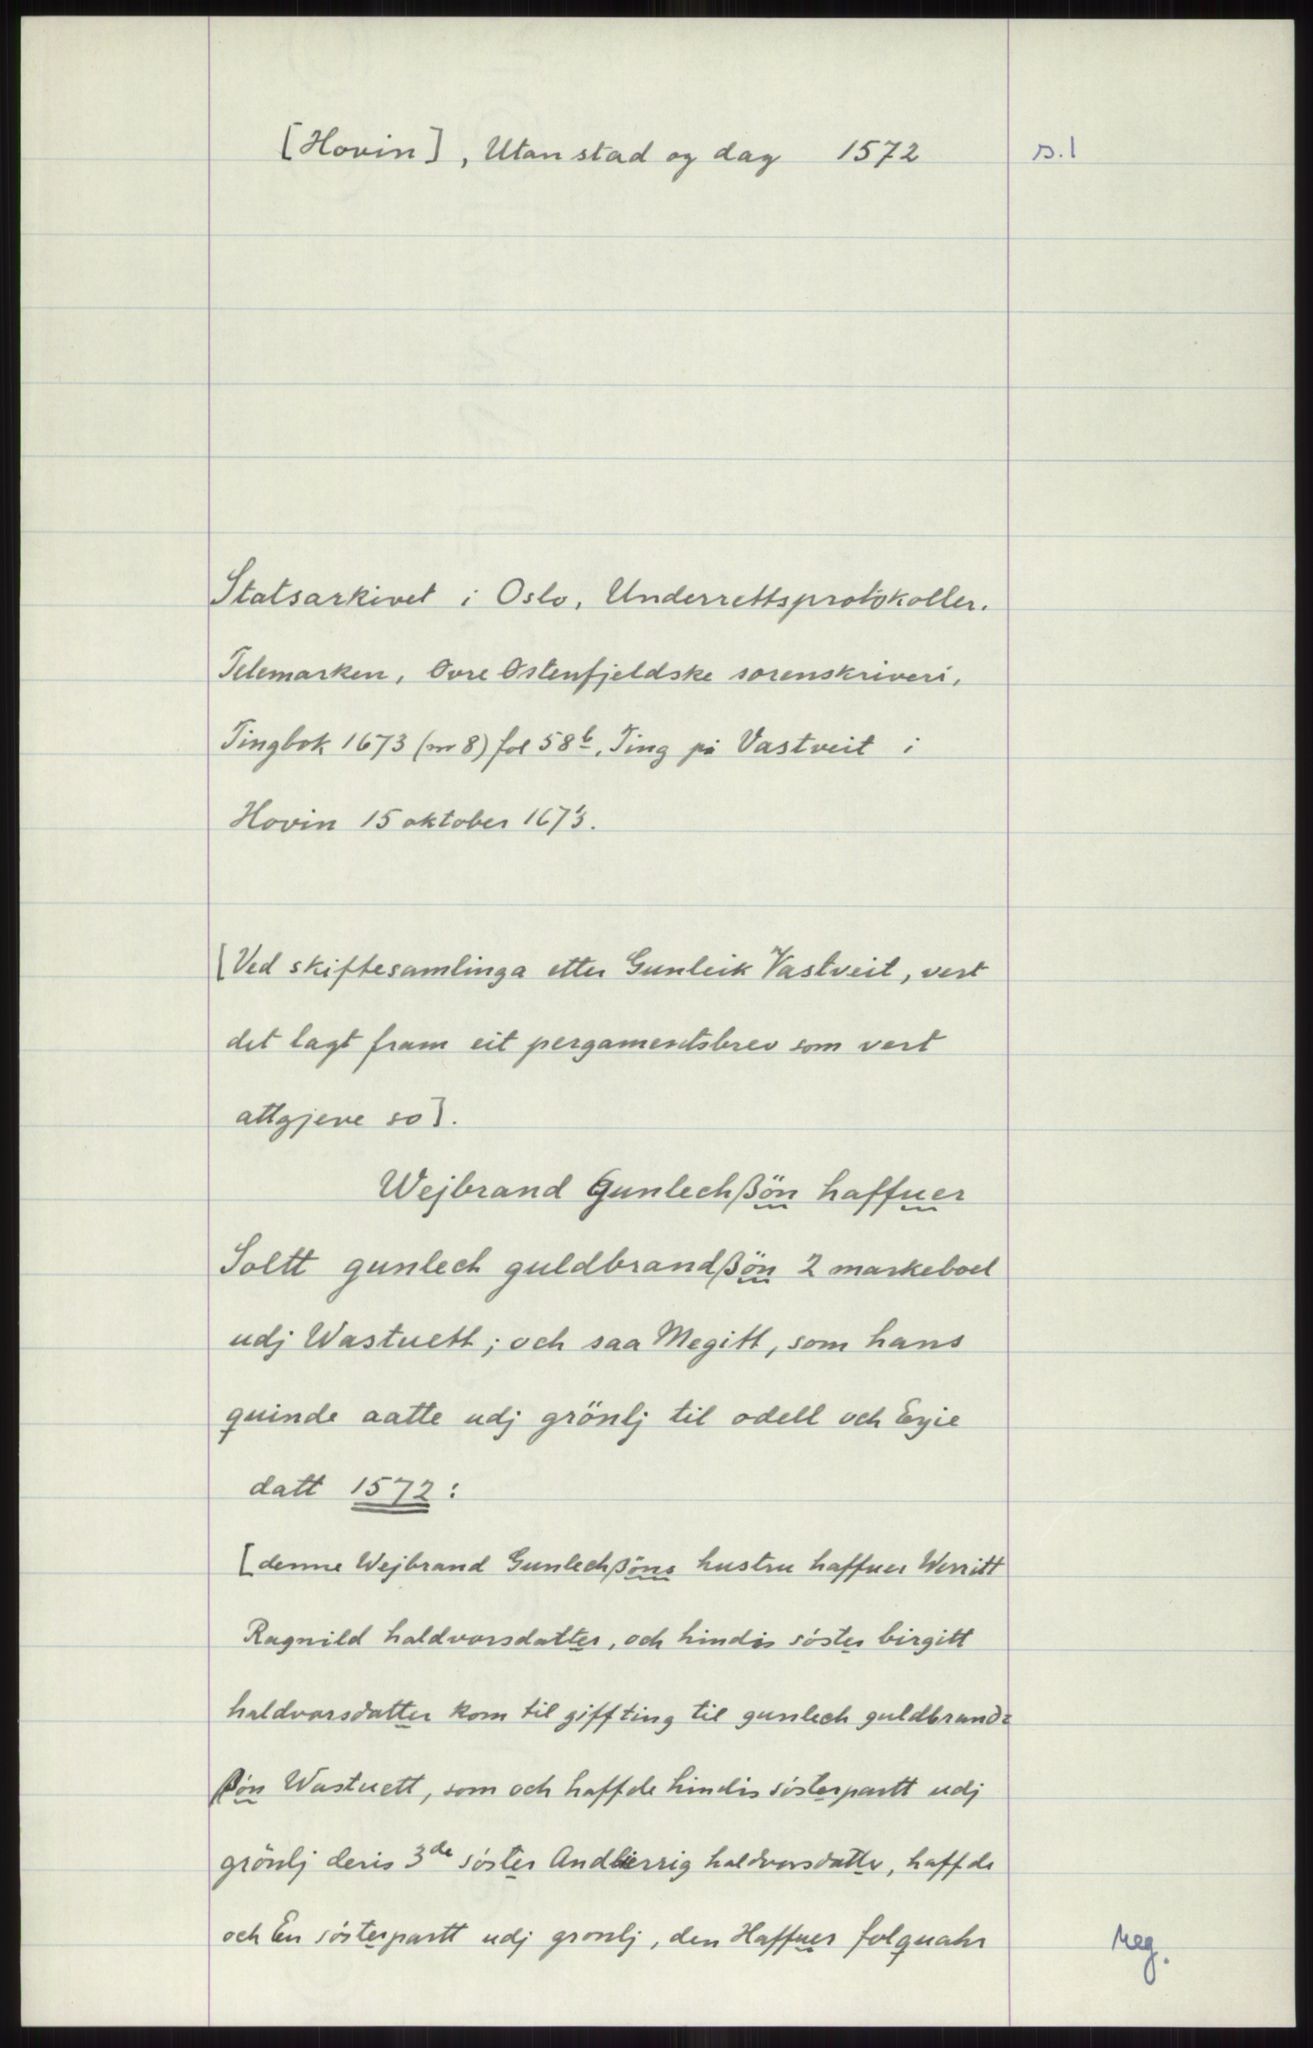 [Hovin], Utan stad og dag 1572 s.1
Statsarkivet i Oslo, Underrettsprotokoller.
Telemarken, Øvre Østenfjeldske sorenskriveri,
Tingbok 1673 (nr 8) fol 58b. Ting på Vastveit i
Hovin 15 oktober 1673.
[Ved skiftesamlinga etter Gunleik Vastveit, vert
det lagt fram eit pergamentsbrev som vert
attgjeve so].
Wejbrand Gunlechßön haffuer
Soltt gunlech guldbrandßön 2 markeboel
udj Wastuett; och saa Megitt, som hans
quinde aatte udj grönlj til odell och Eyie
datt 1572:
[denne Wejbrand Gunlechßöns hustru haffuer Werritt
Ragnild haldvorsdatter, och hindis söster birgitt
haldvorsdatter kom til giffting til gunlech guldbrand=
ßön Wastuett, som och haffde hindis sösterpartt udj
grönlj deris 3de söster Andbierrig haldvorsdatter, haffde
och En sösterpartt udj gronlj, den Haffuer folquahr
Reg.